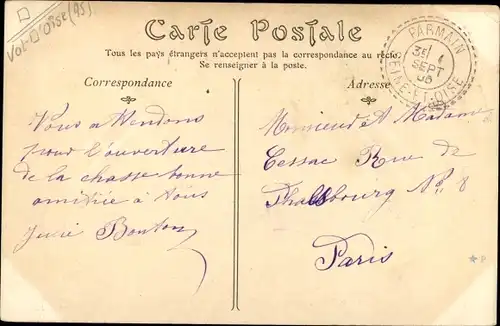 Val-D'Oise (95)
Carte Postale
Tous les pays étrangers n'acceptent pas la correspondance au recto.
Se renseigner à la poste.
PARMAIN
SEPT
SEINE-ET-OISE
Correspondance
Adresse
Vous attendons
pour l'ouverture
de la chasse bonne
amitiée à tous
Bonton
Monsieur et Madame
Cessac Rue de
Phalsbourg No 8
Paris